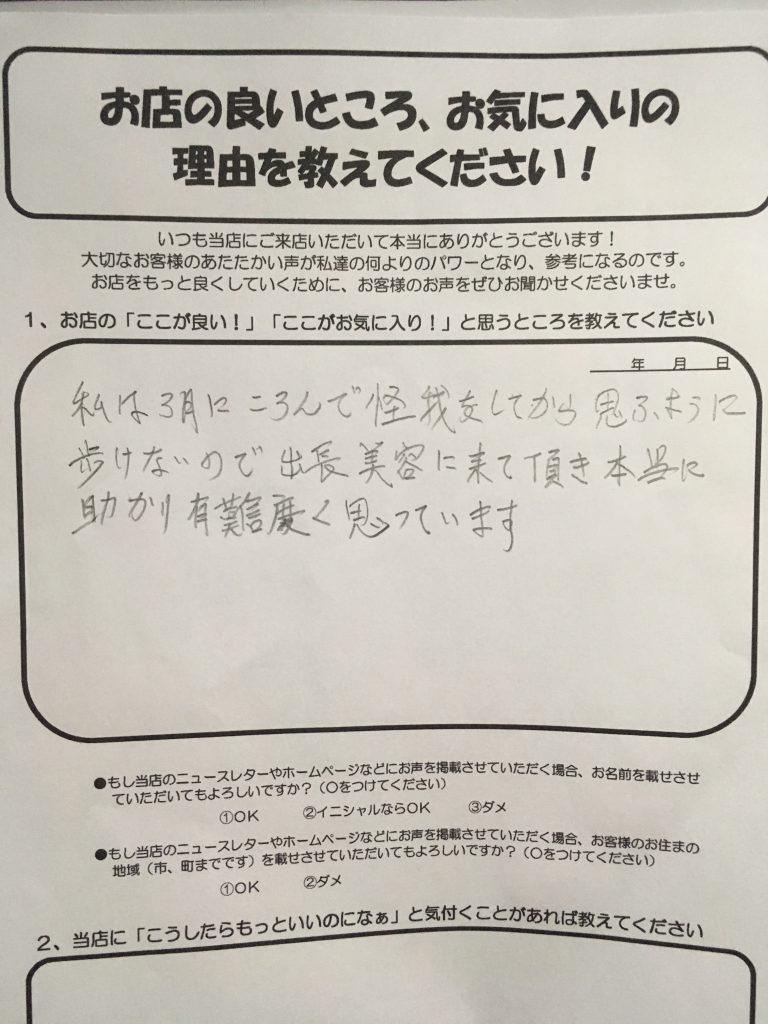 お店の良いところ、お気に入りの
理由を教えてください！
いつも当店にご来店いただいて本当にありがとうございます！
大切なお客様のあたたかい声が私達の何よりのパワーとなり、参考になるのです。
お店をもっと良くしていくために、お客様のお声をぜひお聞かせくださいませ。
１、お店の「ここが良い！」「ここがお気に入り！」と思うところを教えてください
年　月　日
私は3月にころんで怪我をしてから思ふように
歩けないので出張美容に来て頂き本当に
助かり有難く思っています
●もし当店のニュースレターやホームページなどにお声を掲載させていただく場合、お名前を載せさせ
ていただいてもよろしいですか？（○をつけてください）
①OK　②イニシャルならOK　③ダメ
●もし当店のニュースレターやホームページなどにお声を掲載させていただく場合、お客様のお住まの
地域（市、町までです）を載せさせていただいてもよろしいですか？（○をつけてください）
①OK　②ダメ
２、当店に「こうしたらもっといいのになぁ」と気付くことがあれば教えてください